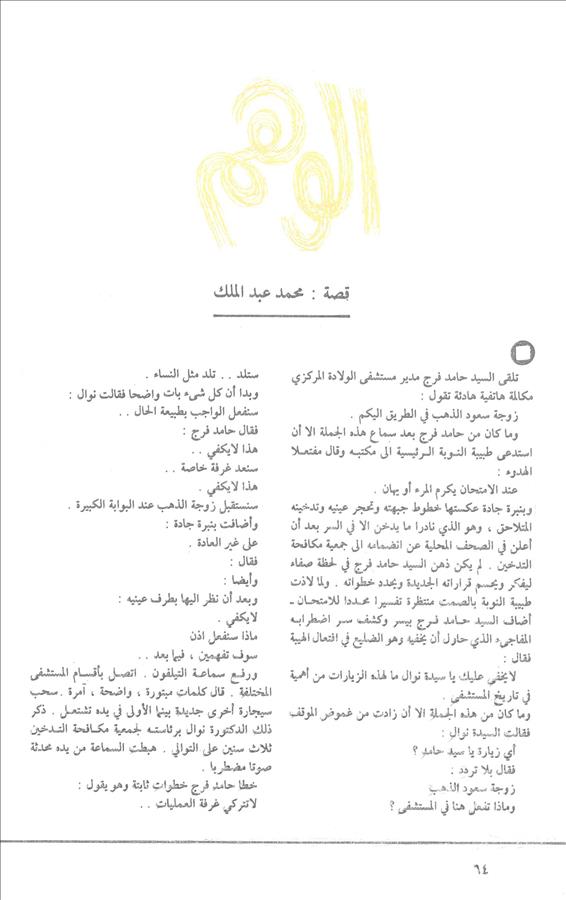 الوهم
قصة : محمد عبد الملك
تلقى السيد حامد فرج مدير مستشفى الولادة المركزي
مكالمة هاتفية هادئة تقول :
زوجة سعود الذهب في الطريق اليكم .
وما كان من حامد فرج بعد سماع هذه الجملة الا أن
استدعى طبيبة النوبة الرئيسية الى مكتبه وقال مفتعلا
الهدوء :
عند الامتحان يكرم المرء أو يهان .
وبنبرة جادة عكستها خطوط جبهته وتحجر عينيه وتدخينه
المتلاحق ، وهو الذي نادرا ما يدخن الا في السر بعد أن
أعلن في الصحف المحلية عن انضمامه الى جمعية مكافحة
التدخين . لم يكن ذهن السيد حامد فرج في لحظة صفاء
ليفكر ويحسم قراراته الجديدة ويحدد خطواته . ولما لاذت
طبيبة النوبة بالصمت منتظرة تفسيرا محددا للامتحان ـ
أضاف السيد حامد فرج بيسر وكشف سر اضطرابه
المفاجىء الذي حاول أن يخفيه وهو الضليع في افتعال الهيبة
فقال :
لايخفي عليك يا سيدة نوال ما لهذه الزيارات من أهمية
في تاريخ المستشفى .
وما كان من هذه الجملة الا أن زادت من غموض الموقف
فقالت السيدة نوال :
أي زيارة يا سيد حامد ؟
فقال بلا تردد :
زوجة سعود الذهب
وماذا تفعل هنا في المستشفى ؟
ستلد . . تلد مثل النساء .
وبدا أن كل شىء بات واضحا فقالت نوال :
سنفعل الواجب بطبيعة الحال . .
فقال حامد فرج :
هذا لايكفي . .
سنعد غرفة خاصة . .
هذا لايكفي .
سنستقبل زوجة الذهب عند البوابة الكبيرة .
وأضافت بنبرة جادة :
على غير العادة .
فقال :
وأيضا :
وبعد أن نظر اليها بطرف عينيه :
لايكفي .
ماذا سنفعل اذن
سوف تفهمين ، فيما بعد . .
ورفع سماعة التيلفون . اتصل بأقسام المستشفى
المختلفة . قال كلمات مبتورة ، واضحة ، آمرة . سحب
سيجارة أخرى جديدة بينما الأولى في يده تشتعل . ذكر
ذلك الدكتورة نوال برئاسته لجمعية مكافحة التدخين
ثلاث سنين على التوالي . هبطت السماعة من يده محدثة
صوتا مضطربا .
خطا حامد فرج خطوات ثابتة وهو يقول :
لاتتركي غرفة العمليات . .
٦٤